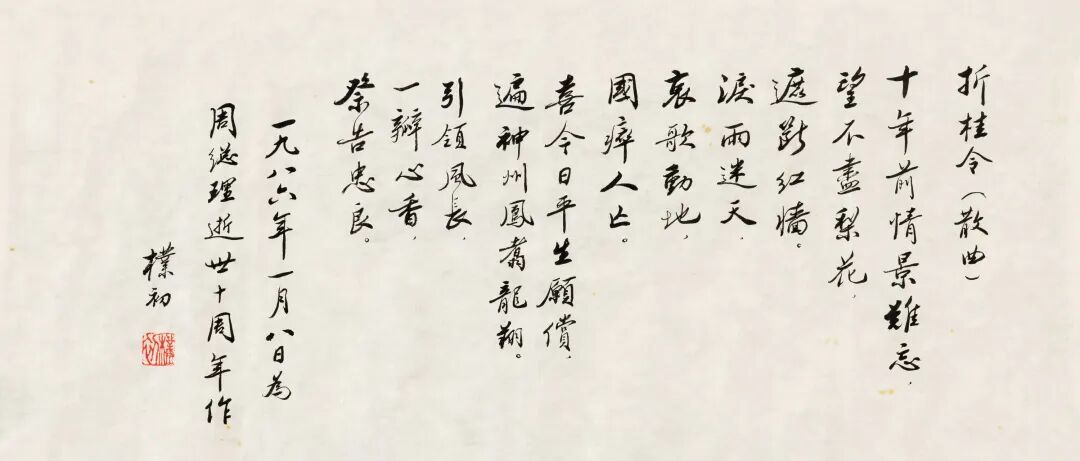 折桂令（散曲）
十年前情景難忘，
望不盡梨花，
遮斷紅牆。
淚雨迷天，
哀歌動地，
國瘁人亡。
喜今日平生願償，
遍神州鳳翥龍翔。
引領風長，
一瓣心香，
祭告忠良。
一九八六年一月八日為
周總理逝世十周年作
樸初
樸初